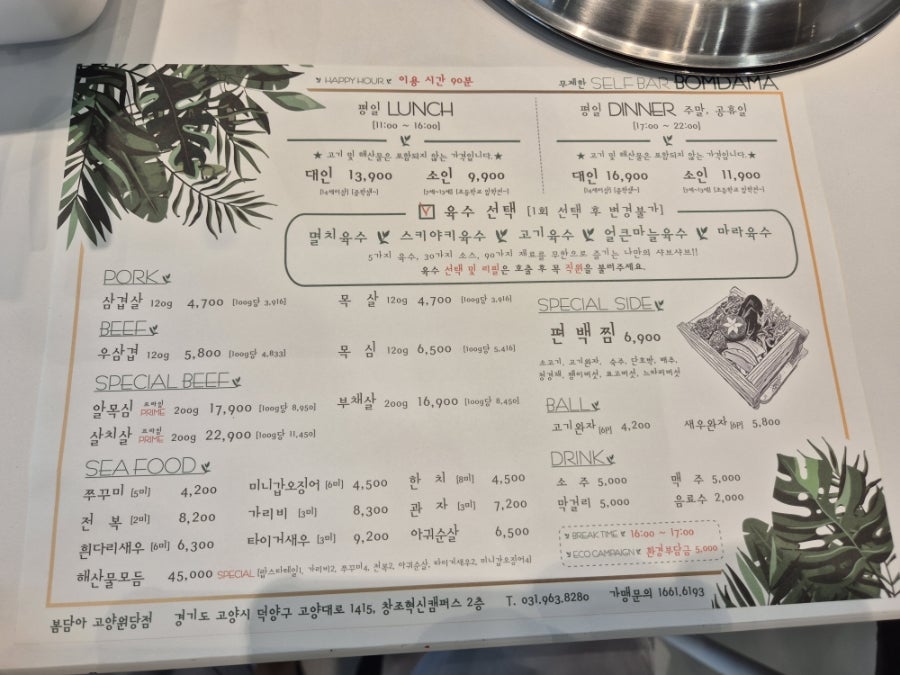 HAPPY HOUR 이용 시간 90분
무제한 SELF BAR BOMDAMA
평일 LUNCH
[11:00 ~ 16:00]
★ 고기 및 해산물은 포함되지 않는 가격입니다. ★
대인 13,900 소인 9,900
평일 DINNER 주말, 공휴일
[17:00 ~ 22:00]
★ 고기 및 해산물은 포함되지 않는 가격입니다. ★
대인 16,900 소인 11,900
육수 선택 [1회 선택 후 변경불가]
멸치육수 스키야키육수 고기육수 얼큰마늘육수 마라육수
5가지 육수, 30가지 소스, 90가지 재료를 무한으로 즐기는 나만의 샤브샤브!!
육수 선택 및 리필은 호출 후 꼭 직원을 불러주세요.
PORK
삼겹살 120g 4,700 [100g당 3,916] 목살 120g 4,700 [100g당 3,916]
BEEF
우삼겹 120g 5,800 [100g당 4,833] 목심 120g 6,500 [100g당 5,416]
SPECIAL BEEF
알목심 프라임 PRIME 200g 17,900 [100g당 8,950] 부채살 200g 16,900 [100g당 8,450]
살치살 프라임 PRIME 200g 22,900 [100g당 11,450]
SPECIAL SIDE
편백찜 6,900
소고기, 고기완자, 숙주, 단호박, 배추,
청경채, 팽이버섯, 표고버섯, 느타리버섯
BALL
고기완자 [6P] 4,200 새우완자 [6P] 5,800
SEA FOOD
쭈꾸미 [5미] 4,200 미니갑오징어 [6미] 4,500 한치 [8미] 4,500
전복 [2미] 8,200 가리비 [3미] 8,300 관자 [3미] 7,200
흰다리새우 [6미] 6,300 타이거새우 [3미] 9,200 아귀순살 6,500
해산물모듬 45,000 SPECIAL [랍스터테일1, 가리비2, 쭈꾸미4, 전복2, 아귀순살, 타이거새우2, 미니갑오징어4]
DRINK
소주 5,000 맥주 5,000
막걸리 5,000 음료수 2,000
BREAK TIME 16:00 ~ 17:00
ECO CAMPAIGN 환경부담금 5,000
봄담아 고양원당점 경기도 고양시 덕양구 고양대로 1415, 창조혁신캠퍼스 2층 T. 031.963.8280 가맹문의 1661.6193